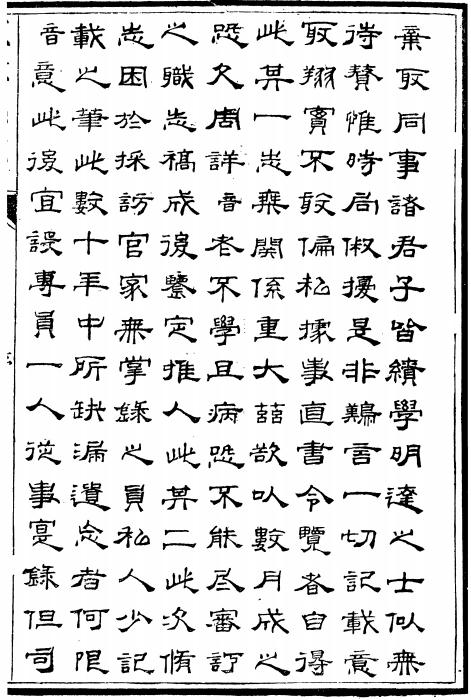 棄取同事諸君子皆績學明達之士似無
待贊惟時局俶擾是非難言一切記載意
取翔實不敢偏私據事直書令覽者自得
此其一志乘關係重大若欲以數月成之
恐欠周詳音老不學且病恐不能尽審訂
之職志稿成後鑒定推人此其二此次脩
志困於採訪官家無掌錄之員私人少記
載之筆此數十年中所缺漏遺忘者何限
音意此後宜設專員一人從事寔錄但司